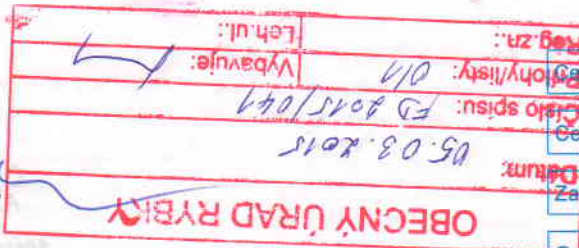 OBECNÝ ÚRAD RYBKY
Dátum: 05.03.2015
Číslo spisu: FD 2015/041
Prílohy/listy: 0/1 Vybavuje:
Reg. zn.: Leh. ul.:
Za
Če
Če